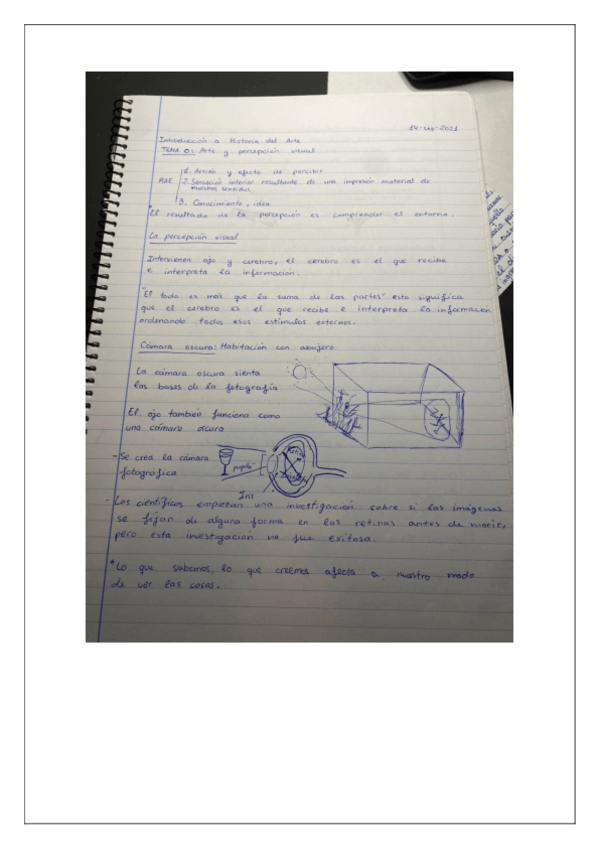 14-sep-2021
Introducción a Historia del Arte
TEMA 0: Arte y percepción visual
1. Acción y efecto de percibir
RAE 2. Sensación interior resultante de una impresión material de
nuestros sentidos
3. Conocimiento, idea
*El resultado de la percepción es comprender el entorno.
La percepción visual
Intervienen ojo y cerebro, el cerebro es el que recibe
e interpreta la información.
"El todo es más que la suma de las partes" esto significa
que el cerebro es el que recibe e interpreta la información
ordenando todos esos estímulos externos.
Cámara oscura: Habitación con abujero
La cámara oscura sienta
las bases de la fotografía
El ojo también funciona como
una cámara oscura
- Se crea la cámara
fotográfica
pupila
Retina
Iris
- Los científicos empiezan una investigación sobre si las imágenes
se fijan de alguna forma en las retinas antes de morir,
pero esta investigación no fue exitosa.
*Lo que sabemos, lo que creemos afecta a nuestro modo
de ver las cosas.